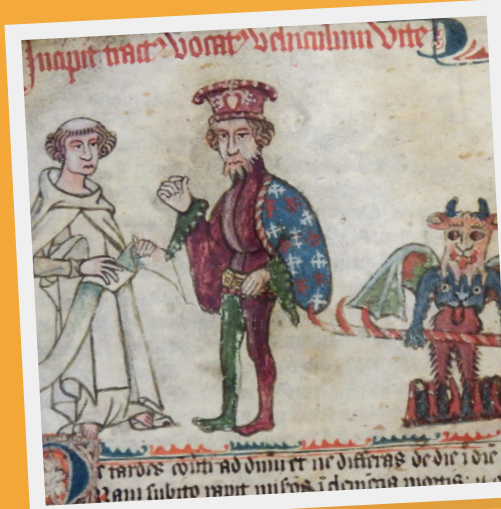 Incipit tract vocat vehiculum vite
Ne tardes coñti ad dnm et ne differas de die i die
Nam subito rapit miseros i clemencia mortis